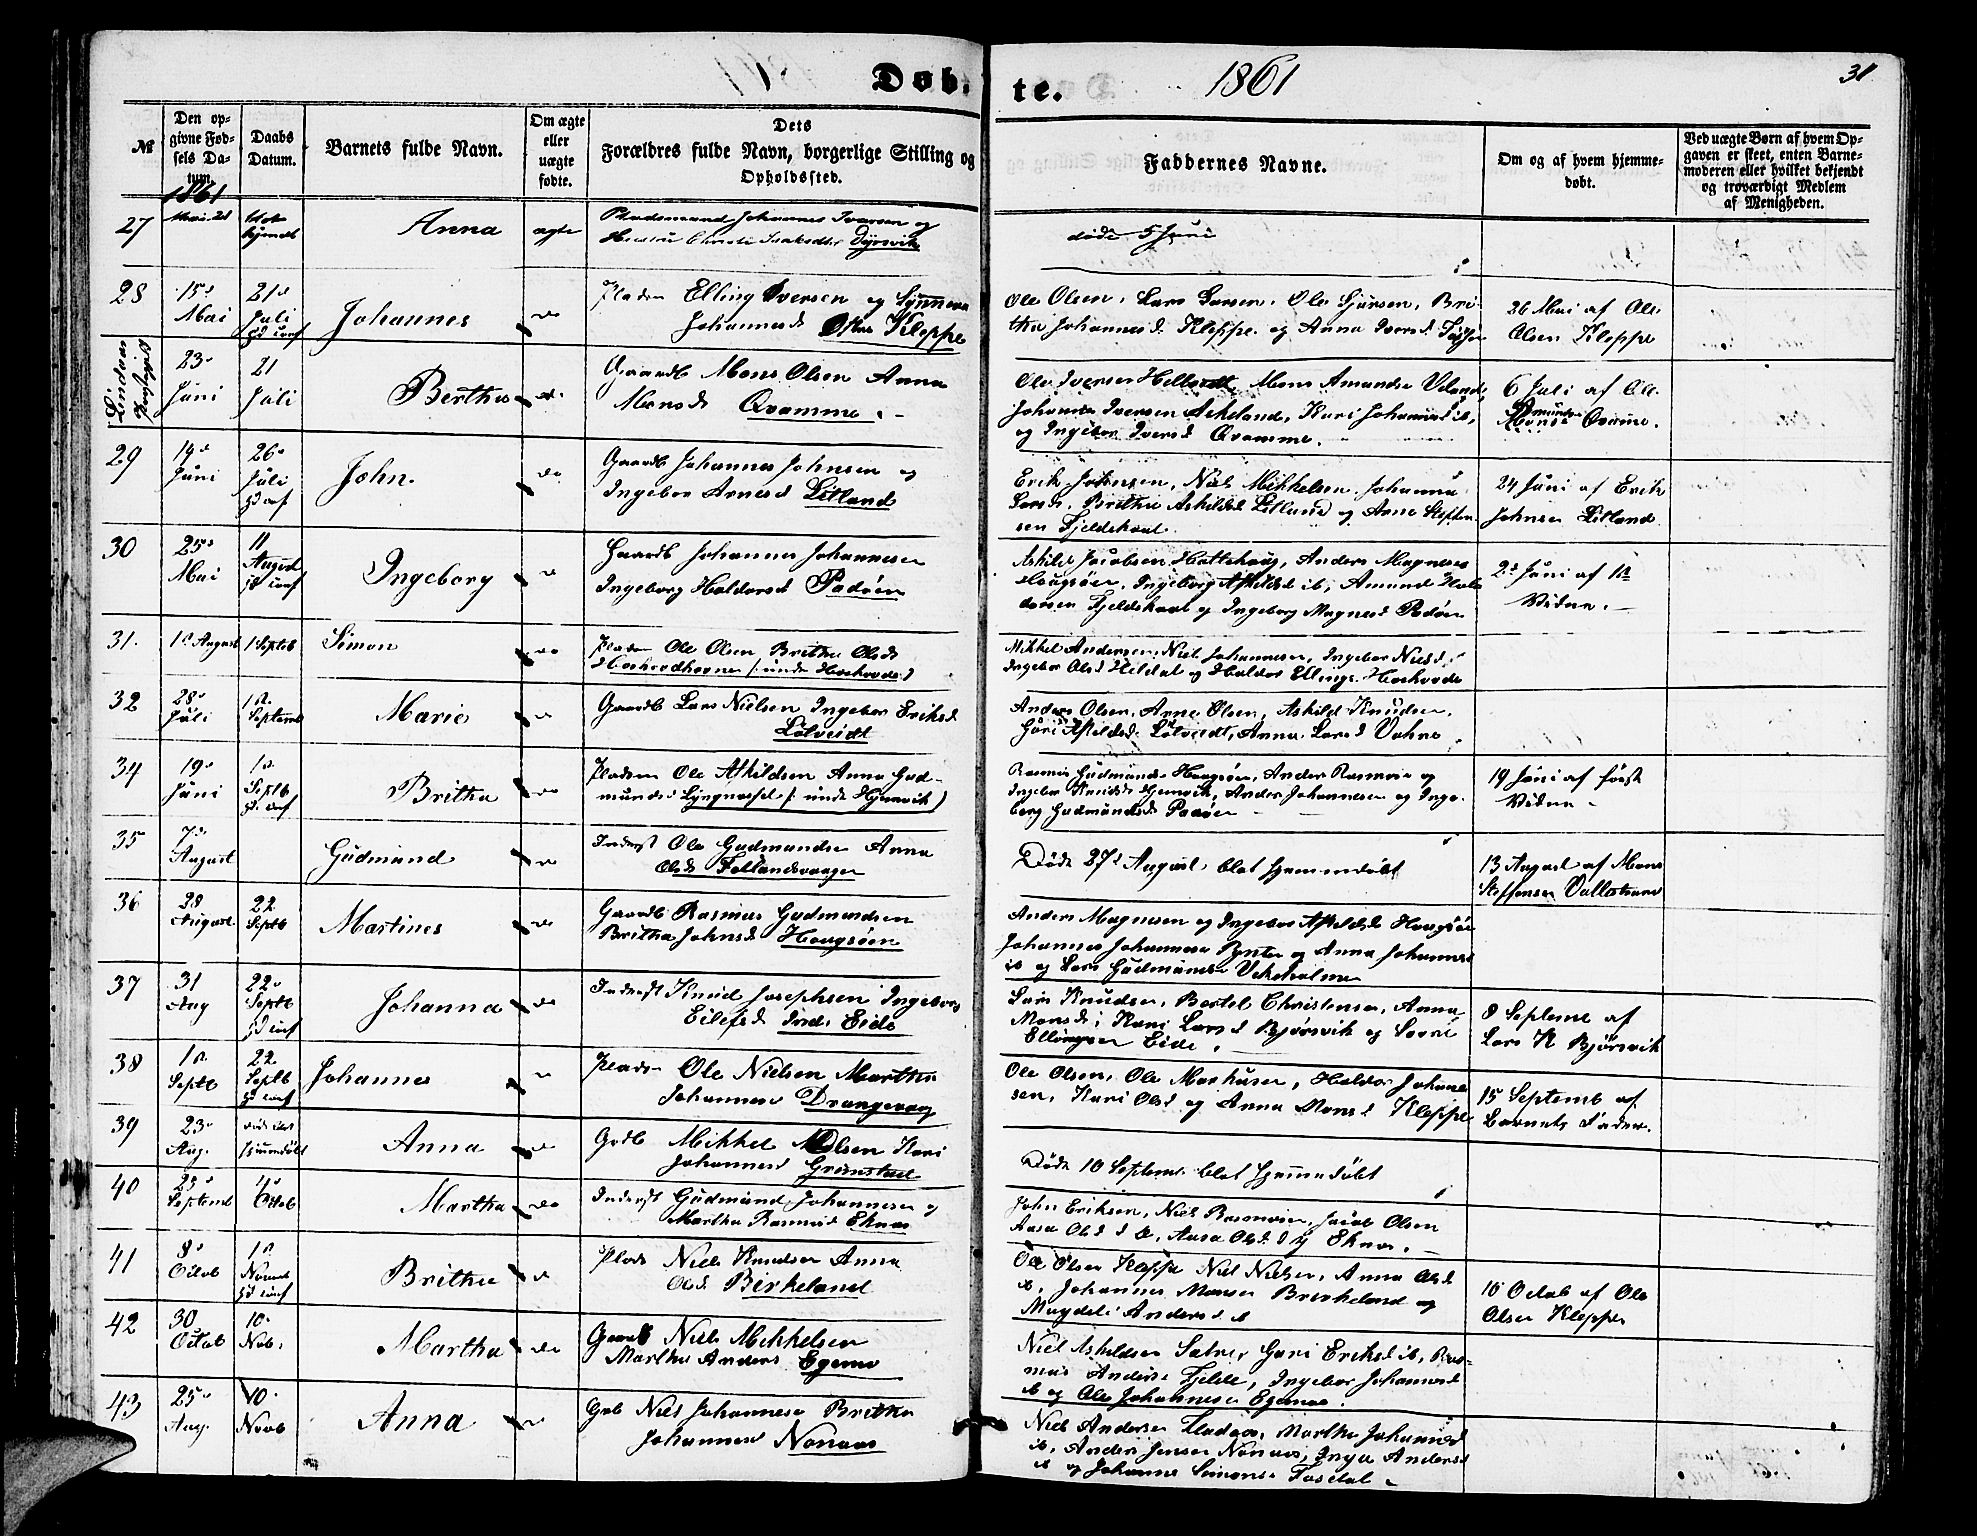 Døb-
te.
1861
31
№
Den op-
givne Fød-
sels Da-
tum.
Daabs
Datum.
Barnets fulde Navn.
Om ægte
eller
uægte
fødte.
Dets
Forældres fulde Navn, borgerlige Stilling og
Opholdssted.
Faddernes Navne.
Om og af hvem hjemme-
døbt.
Ved uægte Børn af hvem Op-
gaven er skeet, enten Barne-
moderen eller hvilket bekjendt
og troværdigt Medlem
af Menigheden.
1861
27
Mai
Anna
ægte
Pladsmand Johannes Iversen og
Dyrsvik
døde 5 Juni
28
15d
Mai
21d
Juli
Johannes
do
Pladsm Elling Iversen og Synneva
Johannesd Kleppe
Ole Olsen, Lars Larsen, Ole Sjursen, Bri-
tha Johannesd Kleppe og Anna Iversd
26 Mai af Ole
Olsen Kleppe
Lindaas
Præstegjeld
23d
Juni
21
Juli
Bertha
do
Gaardb Mons Olsen Anna
Monsd Qvamme
Ole Iversen Helltvedt, Mons Amundse Veland,
Johannes Iversen Askeland, Kari Johannesd ib,
og Ingebor Iversd Qvamme.
6 Juli af Ole
Amundse Qvamme.
29
14d
Juni
26d
Juli
John.
do
Gaardb Johannes Johnsen og
Ingebor Arnesd Litland
Erik Johnsen, Niels Mikkelsen, Johanna
Larsd, Britha Askildsd Litland og Arne Steffen-
sen Fjeldskaal
24 Juni af Erik
Johnsen Litland
30
25d
Mai
11
August
Ingeborg
do
Gaardb Johannes Johannesen
Ingeborg Haldorsd Padøen
Askild Jacobsen Hattehoug, Anders Magnesen
Hougsøen, Ingeborg Askildsd ib, Amund Hal-
dorsen Fjeldskaal og Ingeborg Magnesd Padøen
2d Juni af 1ste
Vidne.
31.
1d August
1 Septb
Simon
do
Pladsm Ole Olsen Britha Olsd
Mikkel Andersen, Niels Johannesen, Ingebor Nielsd,
Ingebor Olsd Hildal og Haldor Ellings.
32
28d
Juli
1ste
Septemb
Marie
do
Gaardb Lars Nielsen Ingebor Eriksd
Lølveidt
Anders Olsen, Arne Olsen, Askild Knudsen,
Guri Askildsd Lølveidt, Anna Larsd Vahne.
34
19d
Juni
1ste
Septb
Britha
do
Pladsm Ole Askildsen Anna Gud-
mundsd Lyngnæsset (: unde Hjemvik)
Rasmus Gudmundse Hougsøen, Anders Rasmuse og
Ingebor Knudsd Hjemvik, Anders Johannesen og Inge-
borg Gudmundsd Padøen
19 Juni af først
Vidne
35
7de
August
Gudmund
do
Inderst Ole Gudmundse Anna
Olsd Fellandsvaagen
Døde 27d August, blot hjemmedøbt
13 August af Mons
Steffensen Vallestrand
36
28
August
22
Septb
Martines
do
Gaardb Rasmus Gudmundsen
Britha Johnsd Hougsøen
Anders Magnesen og Ingebor Askildsd Hougsøe
Johannes Johannesen Bynter og Anna Johannesd
ib og Lars Gudmundse Veksholmen
37
31
Aug
22d
Septb
Johanna
do
Inderst Knud Josephsen Ingeborg
Eilefsd Indr Eide
Lars Knudsen, Bertel Christense, Anna
Monsd, Kari Larsd Bjørsvik og Sevri
Ellingsen Eide.
8 Septemb af
Lars K Bjørsvik
38
1ste
Septb
22
Septb
Johannes
do
Pladsm Ole Nielsen Martha
Johannesd Drangevaag
Ole Olsen, Ole Markusen, Haldor Johanne-
sen, Kari Olsd og Anna Monsd Kleppe
15 Septemb af
Barnets Fader.
39
23d
Aug.
hjemmedøbt
Anna
do
Grdb Mikkel Olsen Kari
Johannesd Grimstad
Døde 10 Septemb blot hjemmedøbt
40
25d
Septemb
4d
Octob
Martha
do
Inderst Gudmund Johannesen og
Martha Rasmusd Eknæs
John Eriksen, Niels Rasmusen, Jacob Olsen
Aasa Olsd d æ, Aasa Olsd d y Eknæs.
41
8d
Octob
1ste
Novemb
Britha
do
Plads Niels Knudsen Anna
Olsd Birkeland
Ole Olsen Kleppe Niels Nielsen, Anna Olsd
ib, Johannes Monsen Birkeland og
Magdeli Andersd ib
10 Octob af Ole
Olsen Kleppe
42
30
Octob
10d
Nob.
Martha
do
Gaardb Niels Mikkelsen
Martha Anders Egemo
Niels Askildsen Sætre, Guri Eriksd ib, Ras-
mus Anderse Fjelde, Ingebor Johannesd
ib og Ole Johannesen Egemo.
43
25d
Aug.
10
Novb
Anna
do
Grdb Niels Johannesen Britha
Johannesd Nonaas
Niels Andersen Fladaas, Martha Johannesd
ib, Anders Jensen Nonaas, Inga Andersd
ib og Johannes Simonse Fosdal